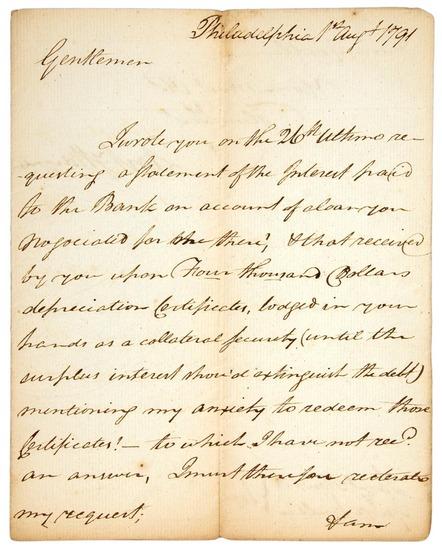 Philadelphia 1st Augt 1791
Gentlemen
I wrote you on the 26th Ultimo re-
questing a Statement of the Interest paid
to the Bank on account of a loan you
negociated for me there!, & that received
by you upon Four thousand Dollars
depreciation Certificates, lodged in your
hands as a collateral security (until the
surplus interest should extinguish the debt)
mentioning my anxiety to redeem those
Certificates! — to which I have not recd.
an answer, I must therefore reiterate
my request;
I am